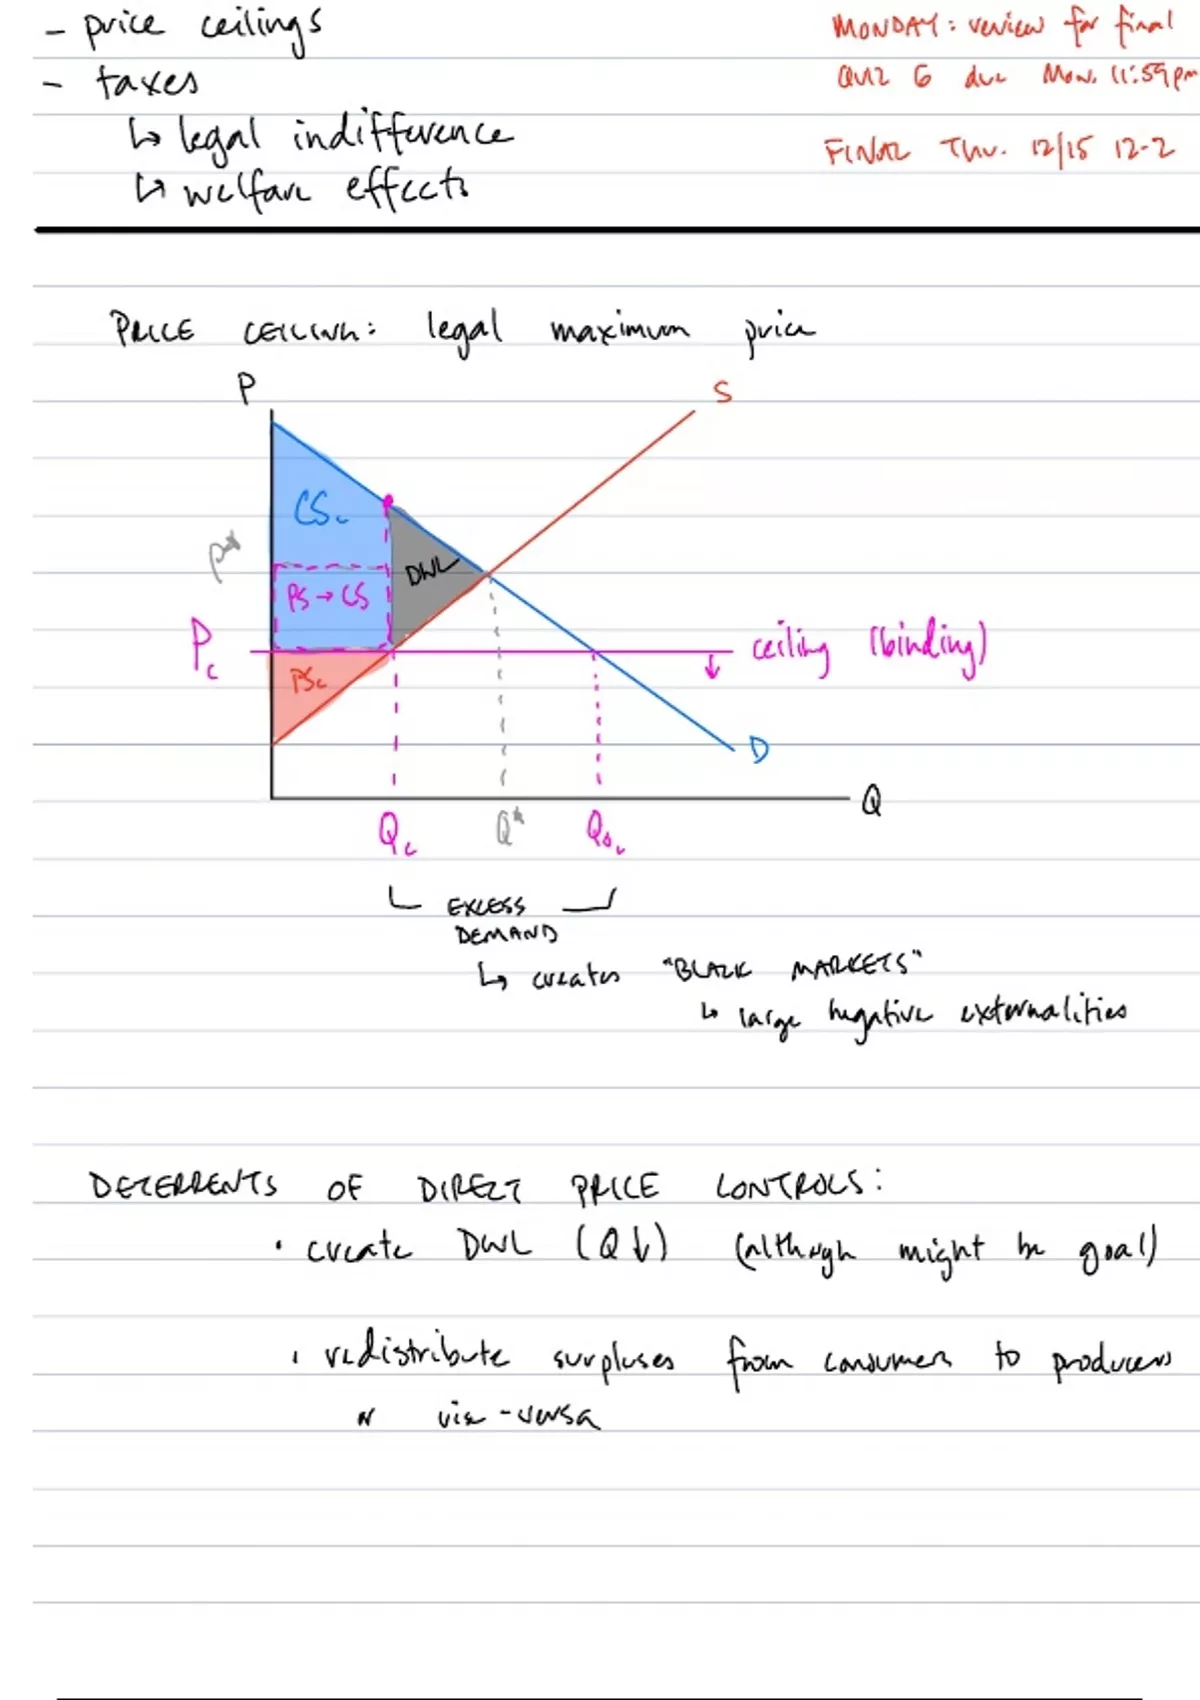 - price ceilings
- taxes
↳ legal indifference
↳ welfare effects
MONDAY: review for final
QUIZ 6 due Mon. 11:59pm
FINAL Thu. 12/15 12-2
PRICE CEILING: legal maximum price
P
S
CSc
P*
DWL
PS → CS
Pc
ceiling (binding)
PSc
D
Q
Qc
Q*
QDc
EXCESS
DEMAND
↳ creates "BLACK MARKETS"
↳ large negative externalities
DETERRENTS OF DIRECT PRICE CONTROLS:
• create DWL (Q↓) (although might be goal)
• redistribute surpluses from consumers to producers
or vice-versa